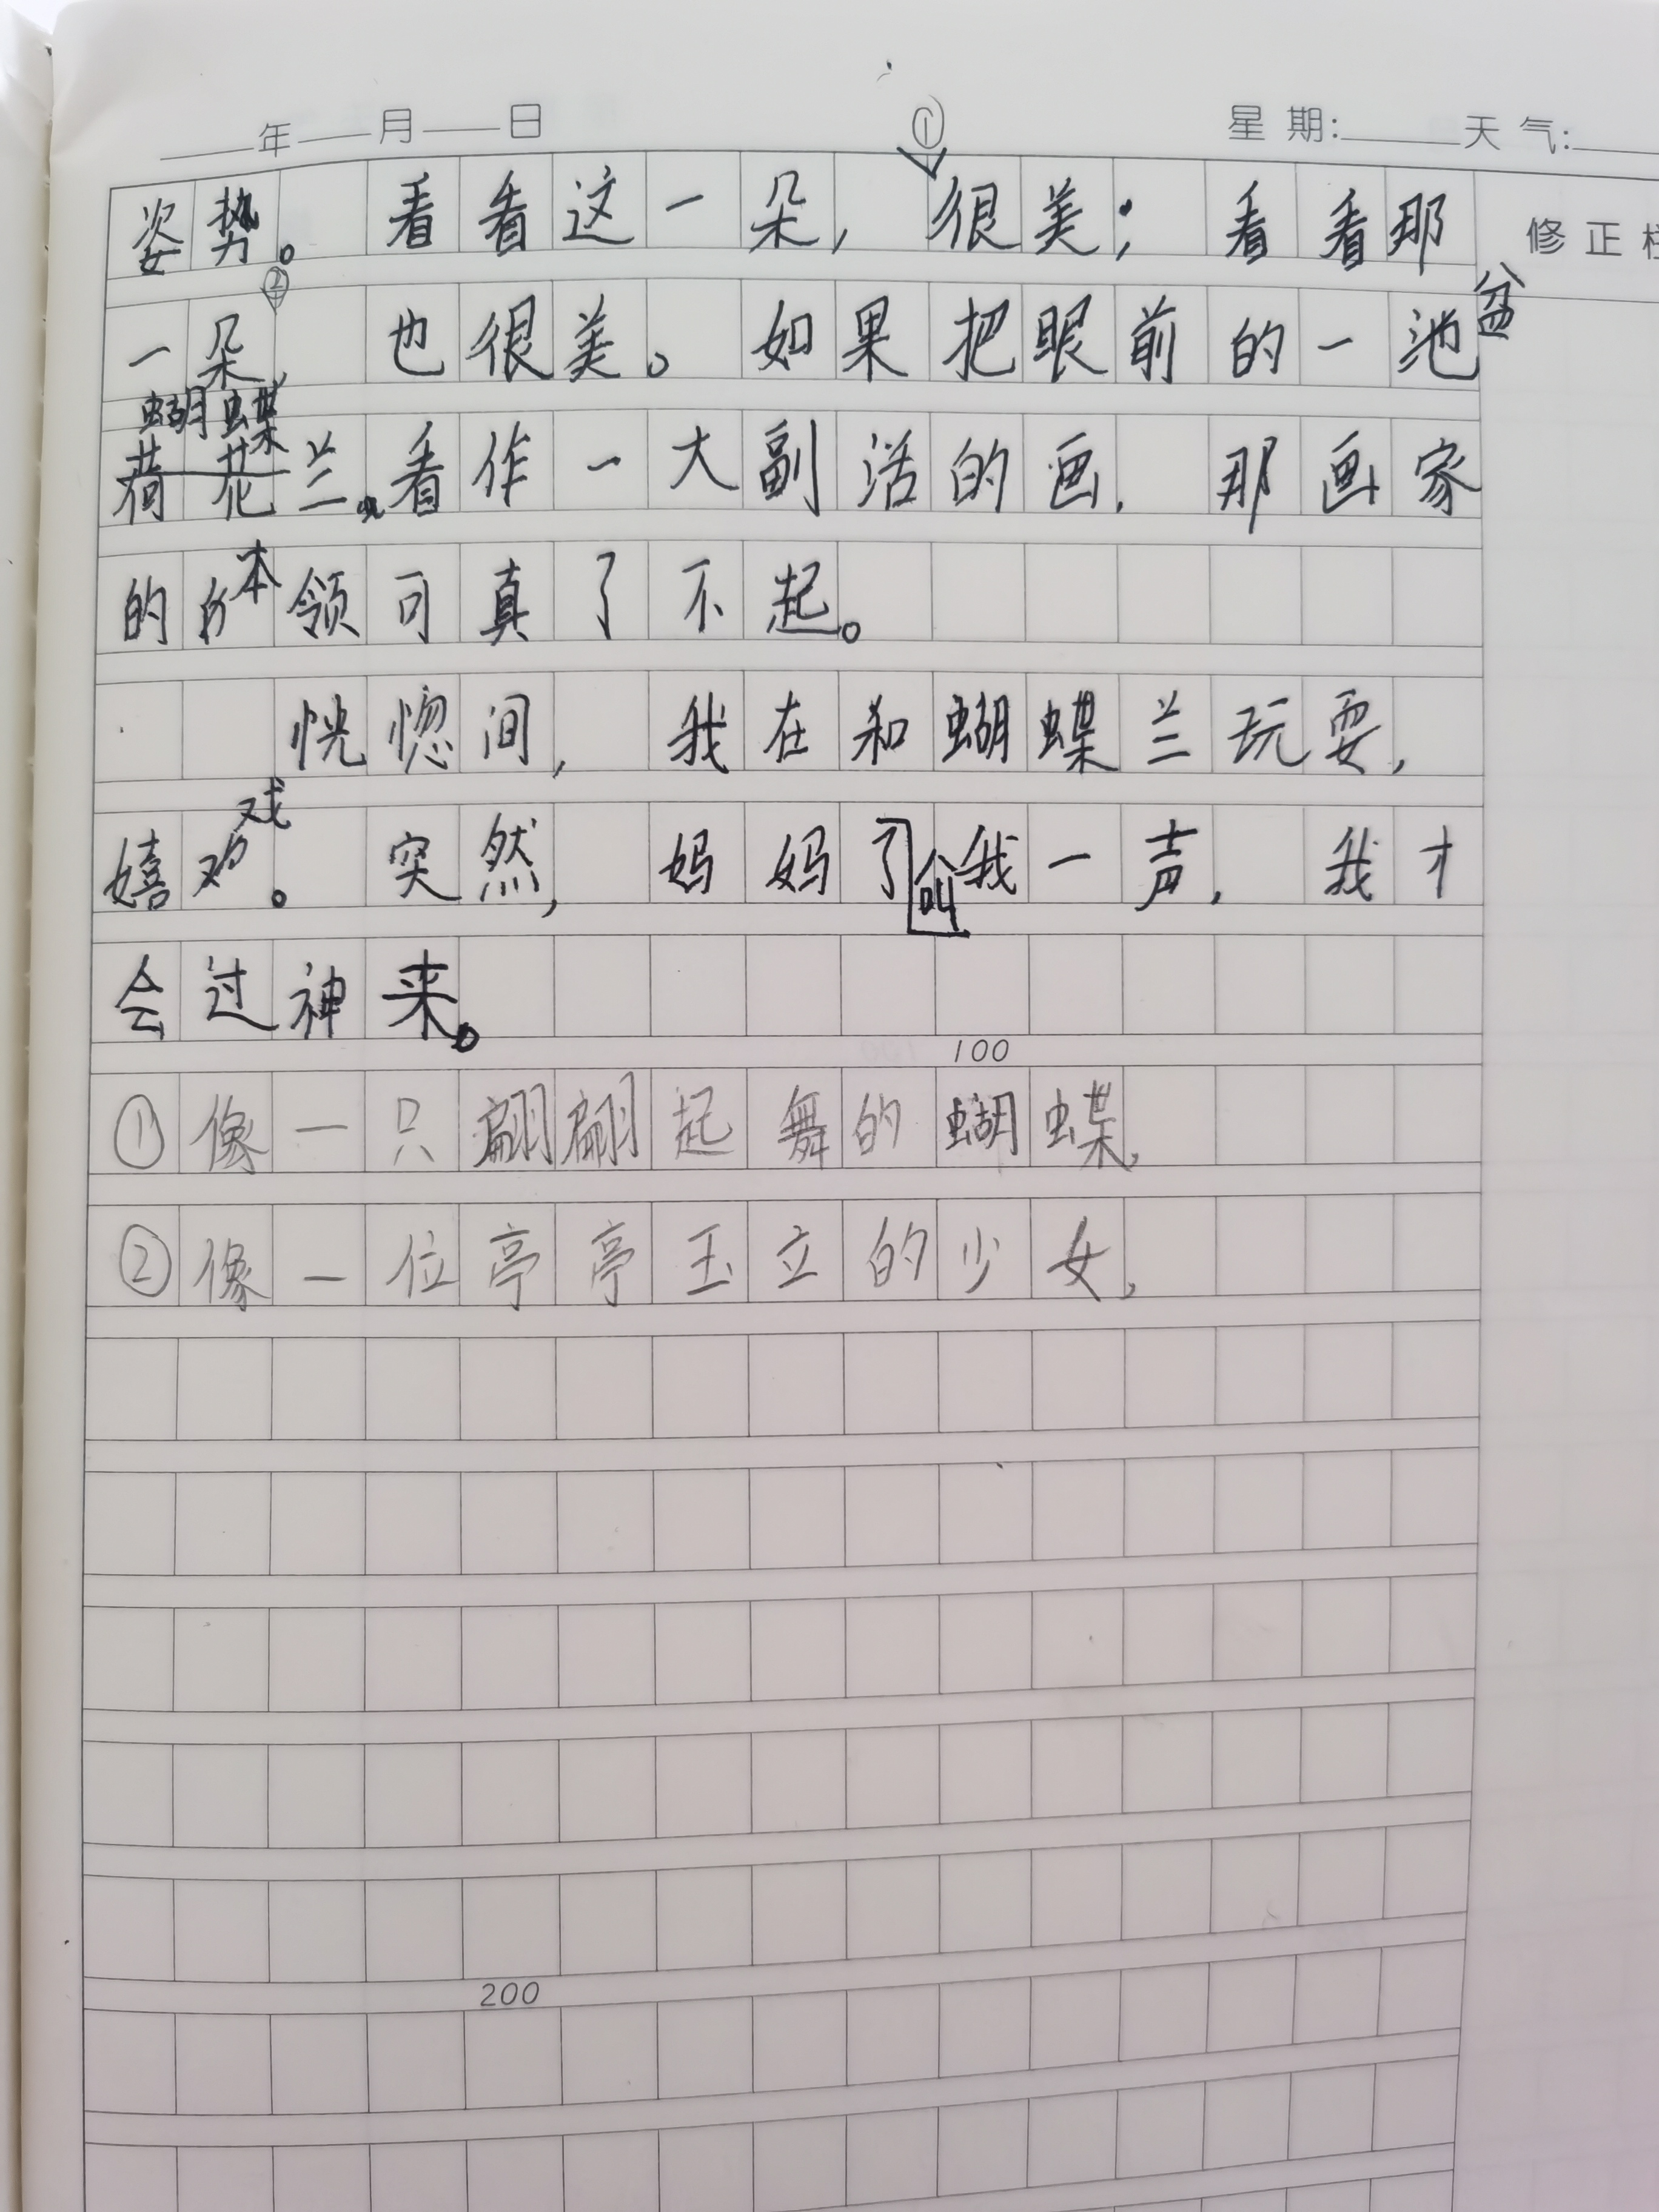 年 月 日 ① 星期: 天气:
姿势。看看这一朵,很美;看看那
修正
②
一朵,也很美。如果把眼前的一池
盆
蝴蝶
荷花兰看作一大副活的画,那画家
的本领可真了不起。
恍惚间,我在和蝴蝶兰玩耍,
嬉戏。突然,妈妈了叫我一声,我才
会过神来。
100
①像一只翩翩起舞的蝴蝶,
②像一位亭亭玉立的少女,
200